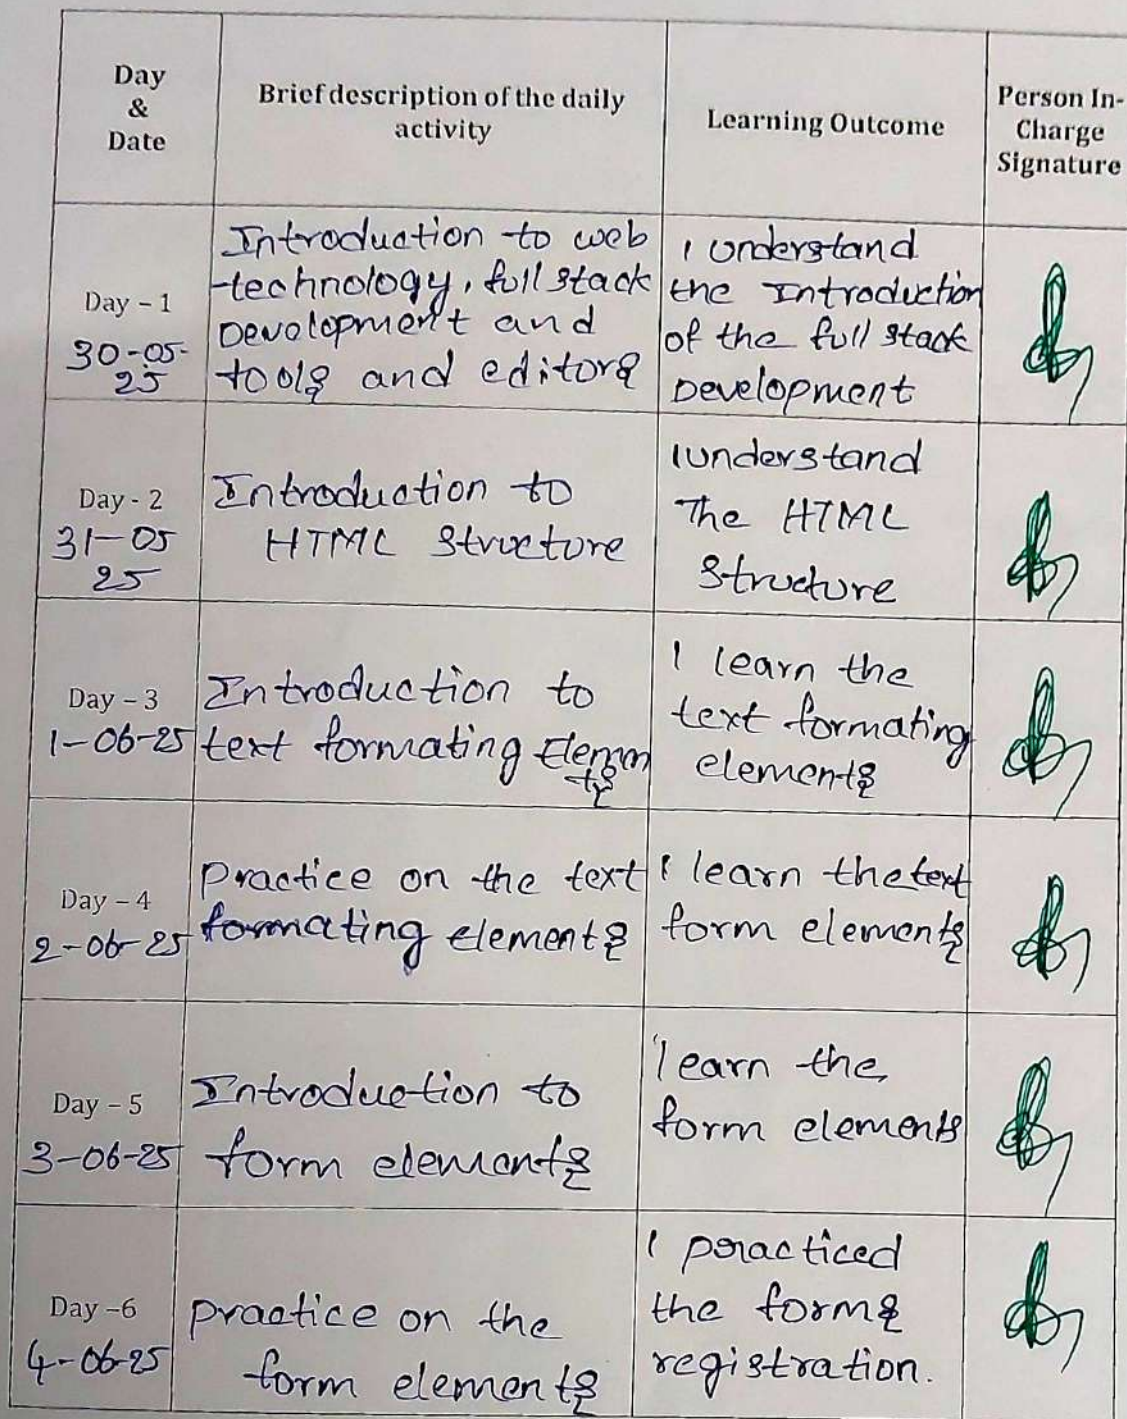 Day
&
Date
Brief description of the daily
activity
Learning Outcome
Person In-
Charge
Signature
Day - 1
30-05-
25
Introduction to web
technology, full stack
Development and
tools and editors
I understand
the Introduction
of the full stack
Development
Day - 2
31-05
25
Introduction to
HTML Structure
I understand
The HTML
Structure
Day - 3
1-06-25
Introduction to
text formating Elemen
ts
I learn the
text formating
elements
Day - 4
2-06-25
Practice on the text
formating elements
I learn the text
form elements
Day - 5
3-06-25
Introduction to
form elements
I learn the
form elements
Day -6
4-06-25
practice on the
form elements
I practiced
the forms
registration.